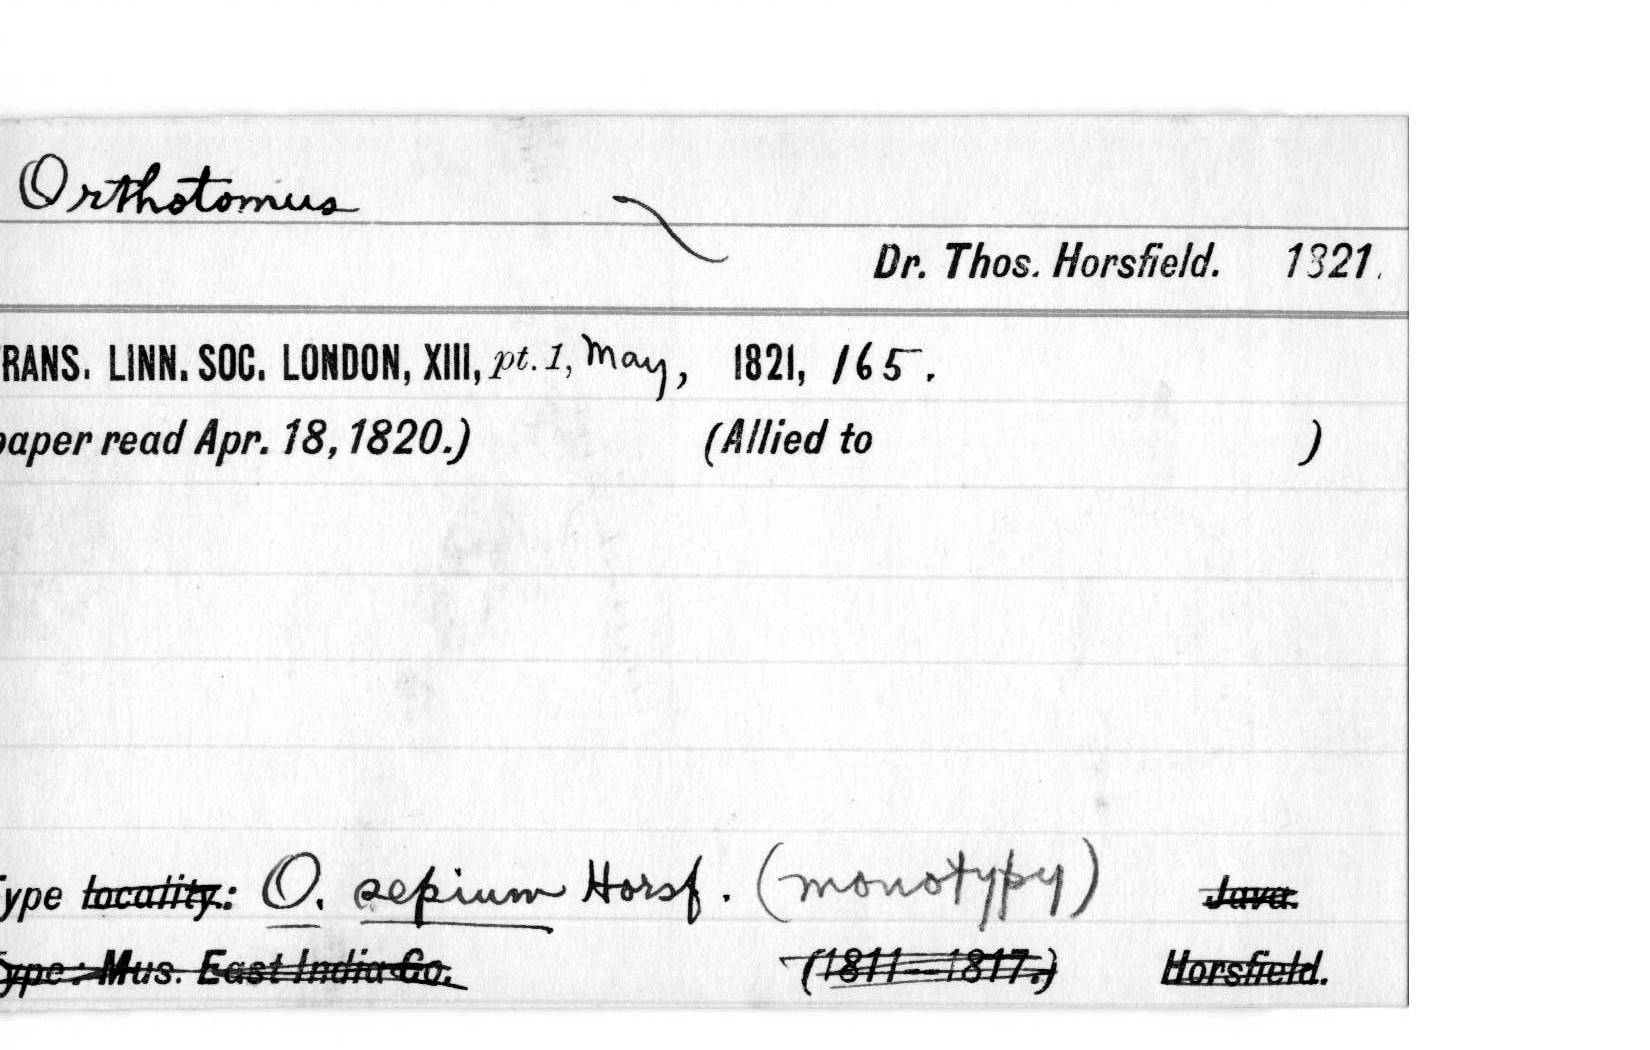 Orthotomus
Dr. Thos. Horsfield. 1821.
RANS. LINN. SOC. LONDON, XIII, pt. 1, May, 1821, 165.
paper read Apr. 18, 1820.) (Allied to )
Type locality.: O. sepium Horsf. (monotypy) Java.
Type: Mus. East India Co. (1811–1817.) Horsfield.